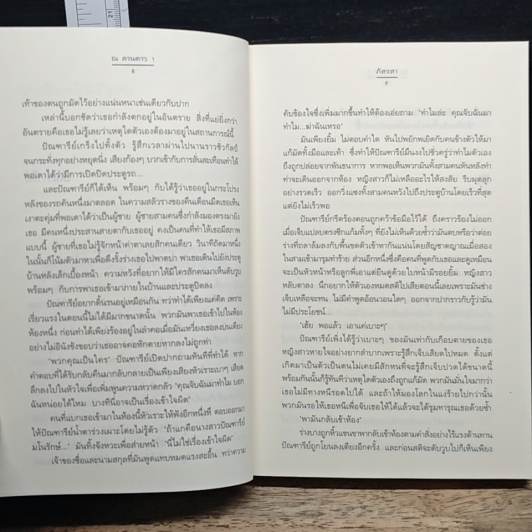 ณ ดานดาว 1
8
เท้าของตนถูกมัดไว้อย่างแน่นหนาเช่นเดียวกับปาก
เหล่านี้บอกชัดว่าเธอกำลังตกอยู่ในอันตราย สิ่งที่แย่ยิ่งกว่า
อันตรายคือเธอไม่รู้เลยว่าเหตุใดตัวเองต้องมาอยู่ในสถานการณ์นี้
ปัณฑารีย์เกร็งไปทั้งตัว รู้สึกเวลาผ่านไปนานราวชั่วกัลป์
จนกระทั่งทุกอย่างหยุดนิ่ง เสียงก้องๆ บวกเข้ากับการสั่นสะเทือนทำให้
พอเดาได้ว่ามีการเปิดปิดประตูรถ...
และปัณฑารีย์ก็ได้เห็น พร้อมๆ กับได้รู้ว่าเธออยู่ในกระโปรง
หลังของรถคันหนึ่งมาตลอด ในความสลัวรางของคืนเดือนมืดเธอเห็น
เงาตะคุ่มที่พอเดาได้ว่าเป็นผู้ชาย ผู้ชายสามคนซึ่งกำลังมองตรงมายัง
เธอ มีคนหนึ่งประสานสายตากับเธออยู่ คงเป็นคนที่ทำให้เธอมีสภาพ
แบบนี้ ผู้ชายที่เธอไม่รู้จักหน้าค่าตาเลยสักคนเดียว วินาทีถัดมาหนึ่ง
ในนั้นก็โน้มตัวมาหาเพื่อดึงรั้งร่างเธอไปพาดบ่า พาเธอเดินไปยังประตู
บ้านหลังเล็กเบื้องหน้า ความหวังที่อยากให้มีใครสักคนมาเห็นดับวูบ
พร้อมๆ กับการพาเธอเข้ามาภายในบ้านและประตูปิดลง
ปัณฑารีย์อยากดิ้นรนอยู่เหมือนกัน ทว่าทำได้เพียงแค่คิด เพราะ
เรี่ยวแรงในตอนนี้ไม่ได้มีมากขนาดนั้น พวกมันพาเธอเข้าไปในห้อง
ห้องหนึ่ง ก่อนทำได้เพียงร้องอยู่ในลำคอเมื่อมันเหวี่ยงเธอลงบนเตียง
อย่างไม่อินังขังขอบว่าเธออาจหักตายหากลงไม่ถูกท่า
"พวกคุณเป็นใคร" ปัณฑารีย์เปิดปากถามทันทีที่ทำได้ หาก
คำตอบที่ได้รับกลับคืนมากลับกลายเป็นเพียงเสียงหัวเราะเบาๆ เสียด
ลึกลงไปในหัวใจเพื่อเพิ่มพูนความหวาดกลัว "คุณจับฉันมาทำไม บอก
ฉันหน่อยได้ไหม บางทีนี่อาจเป็นเรื่องเข้าใจผิด"
คนที่แบกเธอเข้ามาในห้องนี้หัวเราะให้ฟังอีกหนึ่งที ตอบออกมา
ให้ปัณฑารีย์น้ำตาร่วงเผาะโดยไม่รู้ตัว "ถ้าแกคือนางสาวปัณฑารีย์
มโนรักษ์..." มันทิ้งจังหวะเพื่อส่ายหน้า "นี่ไม่ใช่เรื่องเข้าใจผิด"
เจ้าของชื่อและนามสกุลที่มันพูดแทบหมดแรงสะอื้น ทว่าความ
ภัสรสา
9
คับข้องใจซึ่งเพิ่มมากขึ้นทำให้ต้องเอ่ยถาม "ทำไมล่ะ คุณจับฉันมา
ทำไม...ฆ่าฉันเหรอ"
มันเพียงยิ้ม ไม่ตอบคำใด หันไปพยักพเยิดกับคนข้างตัวให้มา
แก้มัดทั้งมือและเท้า ซึ่งทำให้ปัณฑารีย์มึนงงไปชั่วครู่ว่าทำไมตัวเอง
ถึงถูกปล่อยจากพันธนาการ หากพอเห็นพวกมันทั้งสามคนหันหลังทำ
ท่าจะเดินออกจากห้อง หญิงสาวก็ไม่เหลืออะไรให้สงสัย รีบผุดลุก
อย่างรวดเร็ว ออกวิ่งแซงทั้งสามคนหวังไปถึงประตูบ้านโดยเร็วที่สุด
แต่ยังไม่เร็วพอ
ปัณฑารีย์กรีดร้องตอนถูกคว้าข้อมือไว้ได้ ถึงคราวร้องไม่ออก
เมื่อเจ็บแปลบตรงซีกแก้มทั้งๆ ที่ยังไม่เห็นด้วยซ้ำว่ามันตบหรือว่าต่อย
ร่างที่ถลาล้มลงกับพื้นขดตัวเข้าหากันแน่นโดยสัญชาตญาณเมื่อสอง
ในสามเข้ามารุมทำร้าย ส่วนอีกหนึ่งซึ่งคือคนที่พูดกับเธอและดูเหมือน
จะเป็นหัวหน้าหรือลูกพี่เอาแต่ยืนดูด้วยใบหน้ามีรอยยิ้ม หญิงสาว
หลับตาลง นึกอยากให้ตัวเองหมดสติไปเสียตอนนี้เลยเพราะมันช่าง
เจ็บเหลือจะทน ไม่มีคำพูดอ้อนวอนใดๆ ออกจากปากราวกับรู้ว่ามัน
ไม่มีประโยชน์...
"เฮ้ย พอแล้ว เอาแค่เบาะๆ"
ปัณฑารีย์เพิ่งได้รู้ว่าเบาะๆ ของมันเท่ากับเกือบตายของเธอ
หญิงสาวหายใจอย่างยากลำบากเพราะรู้สึกเจ็บเสียดไปหมด ตั้งแต่
เกิดมาเป็นตัวเป็นตนไม่เคยมีสักหนที่จะรู้สึกเจ็บปวดได้ขนาดนี้
พร้อมกันนั้นก็รู้ทันทีว่าเหตุใดตัวเองถึงถูกแก้มัด พวกมันมั่นใจมากว่า
เธอไม่มีทางหนีรอดไปได้ และถ้าให้มองโลกในแง่ร้ายไปกว่านั้น
พวกมันรอให้เธอหนีเพื่อจับเธอให้ได้แล้วจะได้รุมทารุณเธอด้วยซ้ำ
"พามันกลับเข้าห้อง"
ร่างบางถูกหิ้วแขนขาพากลับเข้าห้องตามคำสั่งอย่างไร้แรงต้านทาน
ปัณฑารีย์ถูกโยนลงเตียงอีกครั้ง และก่อนสติจะดับวูบไปก็เห็นเพียง